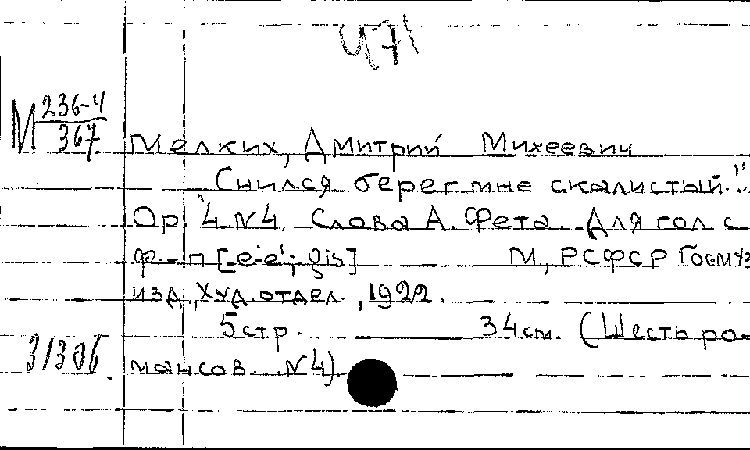 Ч71
М 236-4
367
Мелких, Дмитрий Михеевич
Снился берег мне скалистый.."
Ор. 4 №4. Слова А. Фета. Для гол с
ф-п [e-e'; gis] М, РСФСР Госмуз
изд, Худ. отдел., 1922.
5 стр. 34 см. (Шесть ро-
31306 мансов. №4)